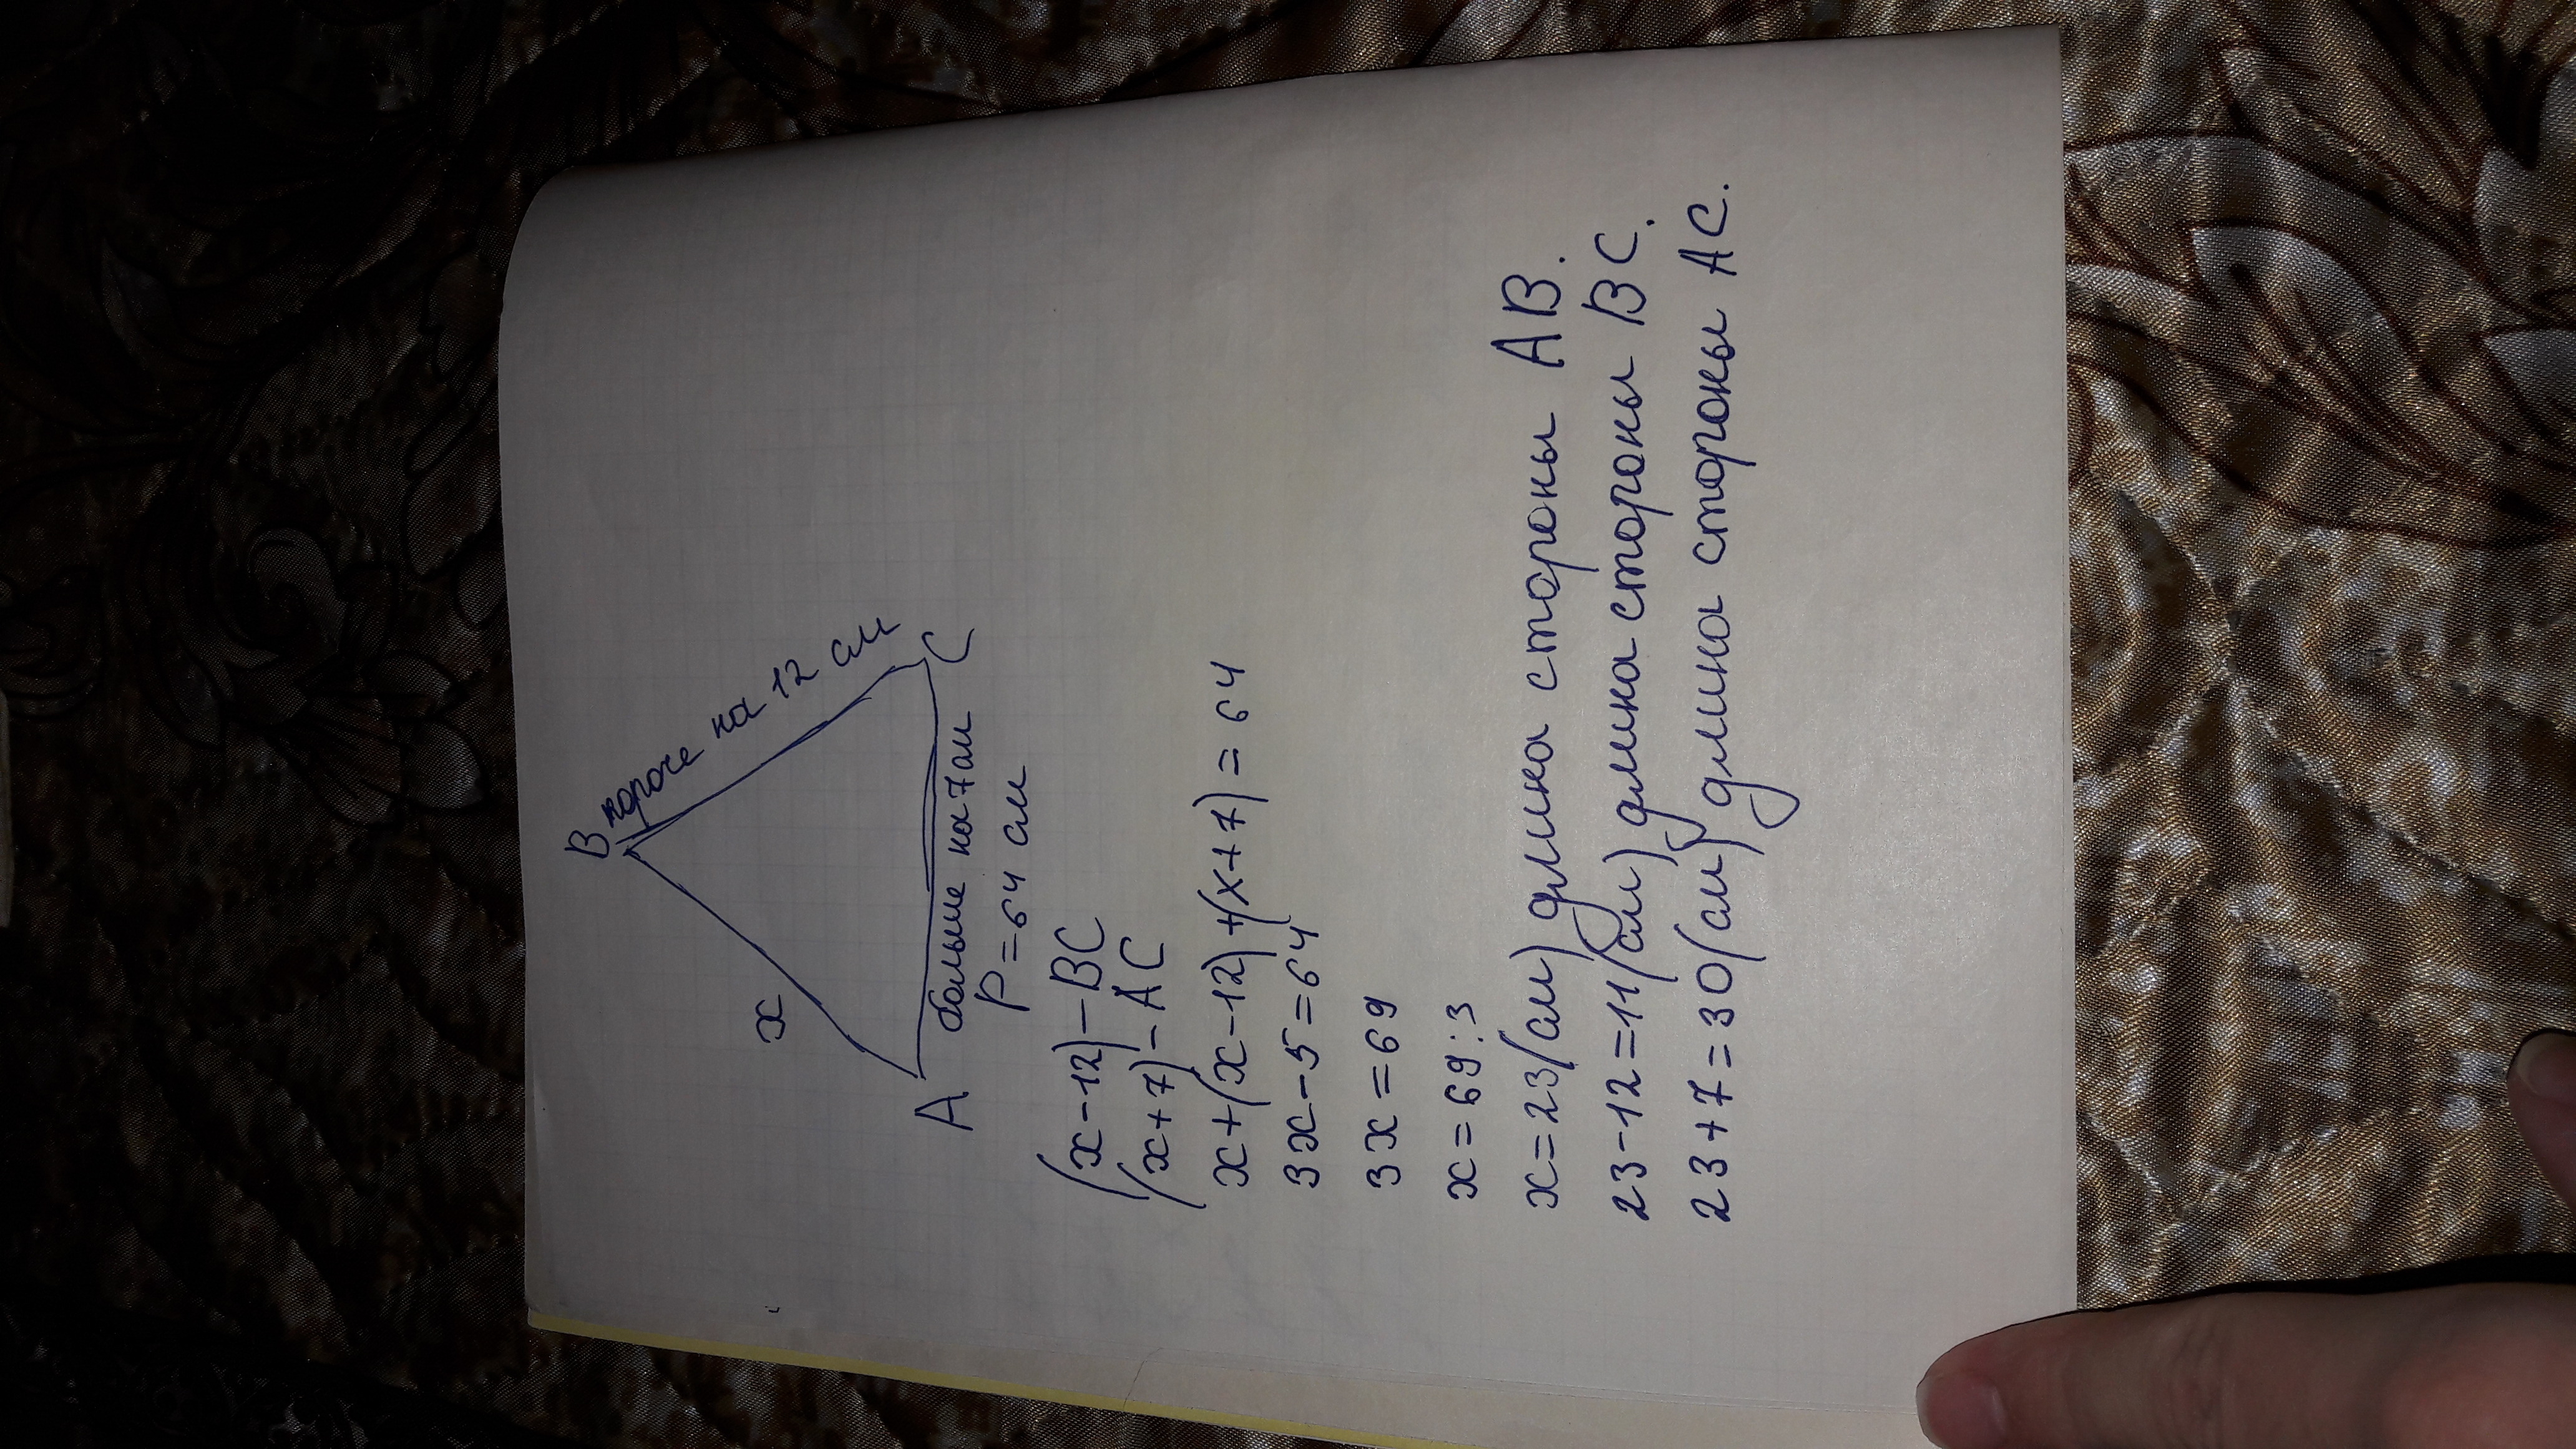 В
х
короче на 12 см
А
С
больше на 7 см
Р = 64 см
(х - 12) - ВС
(х + 7) - АС
х + (х - 12) + (х + 7) = 64
3х - 5 = 64
3х = 69
х = 69 : 3
х = 23 (см) длина стороны АВ.
23 - 12 = 11 (см) длина стороны ВС.
23 + 7 = 30 (см) длина стороны АС.